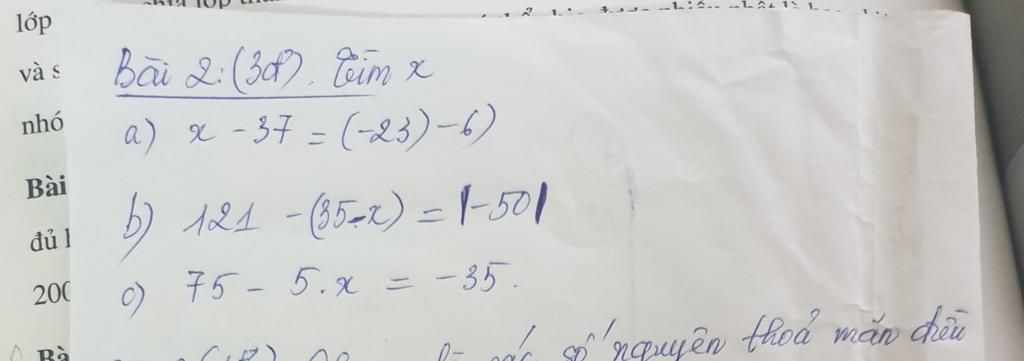 lớp
và s
nhó
Bài
đủ l
200
Bà
Bài 2: (3đ). Tìm x
a) x - 37 = (-23) - 6)
b) 121 - (35 - x) = |-50|
c) 75 - 5.x = -35.
số nguyên thoả mãn điều